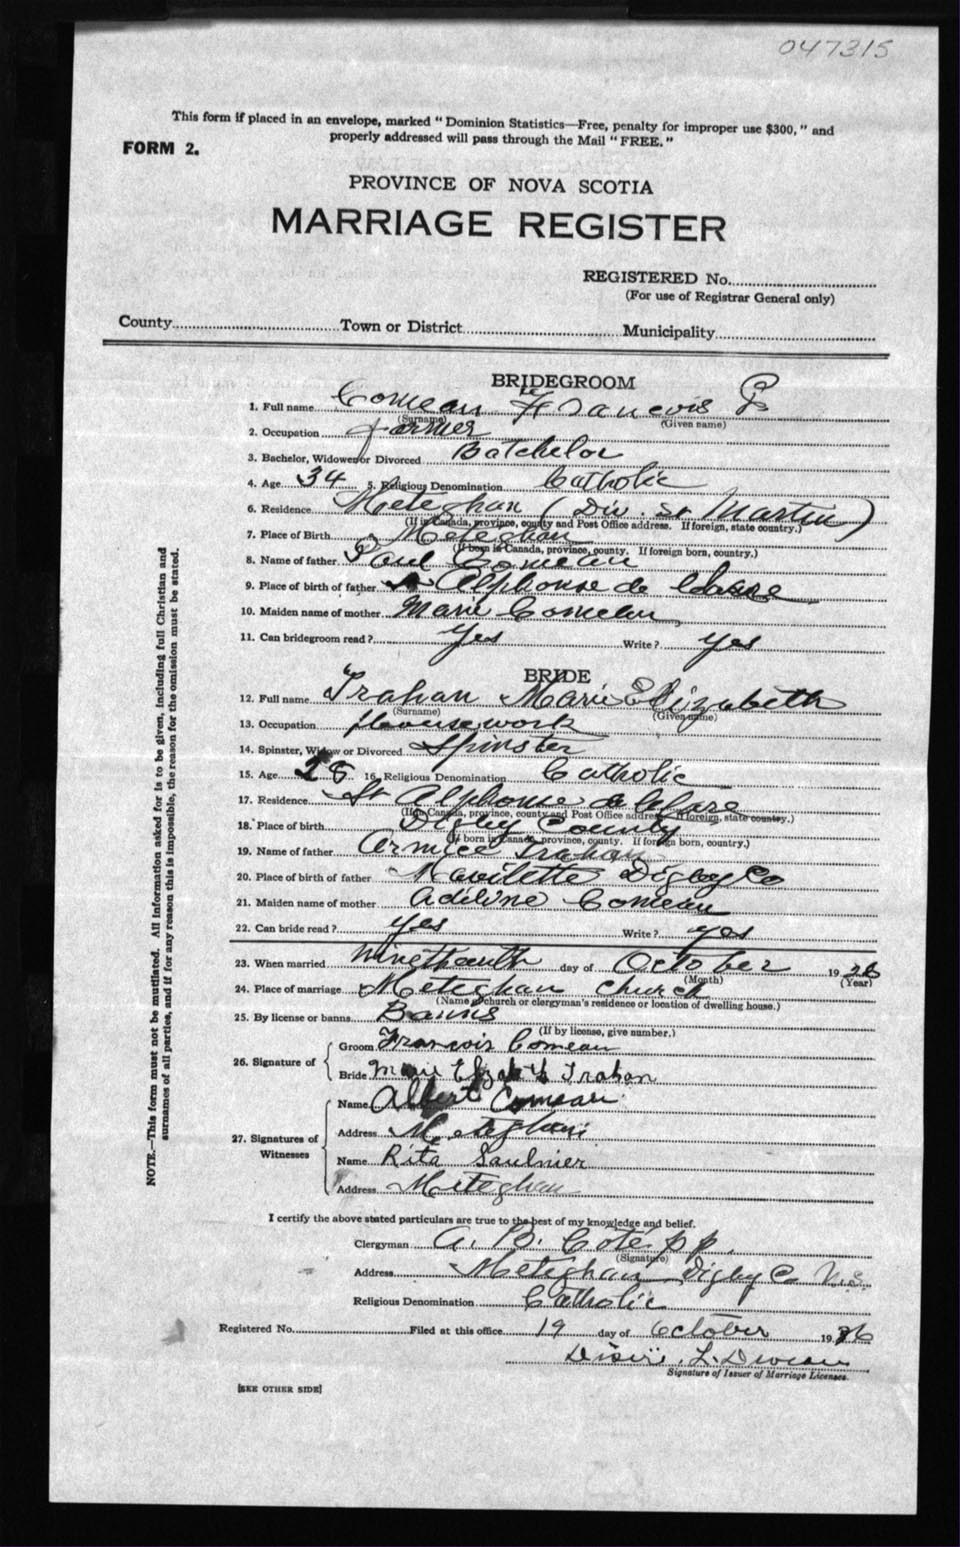 047315
This form if placed in an envelope, marked " Dominion Statistics—Free, penalty for improper use $300, " and
properly addressed will pass through the Mail " FREE. "
FORM 2.
PROVINCE OF NOVA SCOTIA
MARRIAGE REGISTER
REGISTERED No.
(For use of Registrar General only)
County Town or District Municipality
BRIDEGROOM
1. Full name Comeau Francois
(Surname) (Given name)
2. Occupation farmer
3. Bachelor, Widower or Divorced Batchelor
4. Age 34 5. Religious Denomination Catholic
6. Residence Meteghan (Div. St Martin)
(If in Canada, province, county and Post Office address. If foreign, state country.)
7. Place of Birth Meteghan
(If born in Canada, province, county. If foreign born, country.)
8. Name of father Paul Comeau
9. Place of birth of father St Alphonse de Clare
10. Maiden name of mother Marie Comeau
11. Can bridegroom read? Yes Write? yes
BRIDE
12. Full name Trahan Marie Elizabeth
(Surname) (Given name)
13. Occupation Housework
14. Spinster, Widow or Divorced Spinster
15. Age 28 16. Religious Denomination Catholic
17. Residence St Alphonse de Clare
(If in Canada, province, county and Post Office address. If foreign, state country.)
18. Place of birth Digby County
(If born in Canada, province, county. If foreign born, country.)
19. Name of father Trahan
20. Place of birth of father Mavilette Digby Co
21. Maiden name of mother Adeline Comeau
22. Can bride read? yes Write? yes
23. When married Nineteenth day of October 1926
(Month) (Year)
24. Place of marriage Meteghan Church
(Name of church or clergyman's residence or location of dwelling house.)
25. By license or banns Banns
(If by license, give number.)
26. Signature of
Groom Francois Comeau
Bride Marie Elizabeth Trahan
27. Signatures of Witnesses
Name Albert Comeau
Address Meteghan
Name Rita Saulnier
Address Meteghan
I certify the above stated particulars are true to the best of my knowledge and belief.
Clergyman A. B. Coté p.p.
(Signature)
Address Meteghan Digby Co N.S.
Religious Denomination Catholic
Registered No. Filed at this office 19 day of October 1926
L.
Signature of Issuer of Marriage Licenses.
[SEE OTHER SIDE]
NOTE.—This form must not be mutilated. All information asked for is to be given, including full Christian and
surnames of all parties, and if for any reason this is impossible, the reason for the omission must be stated.